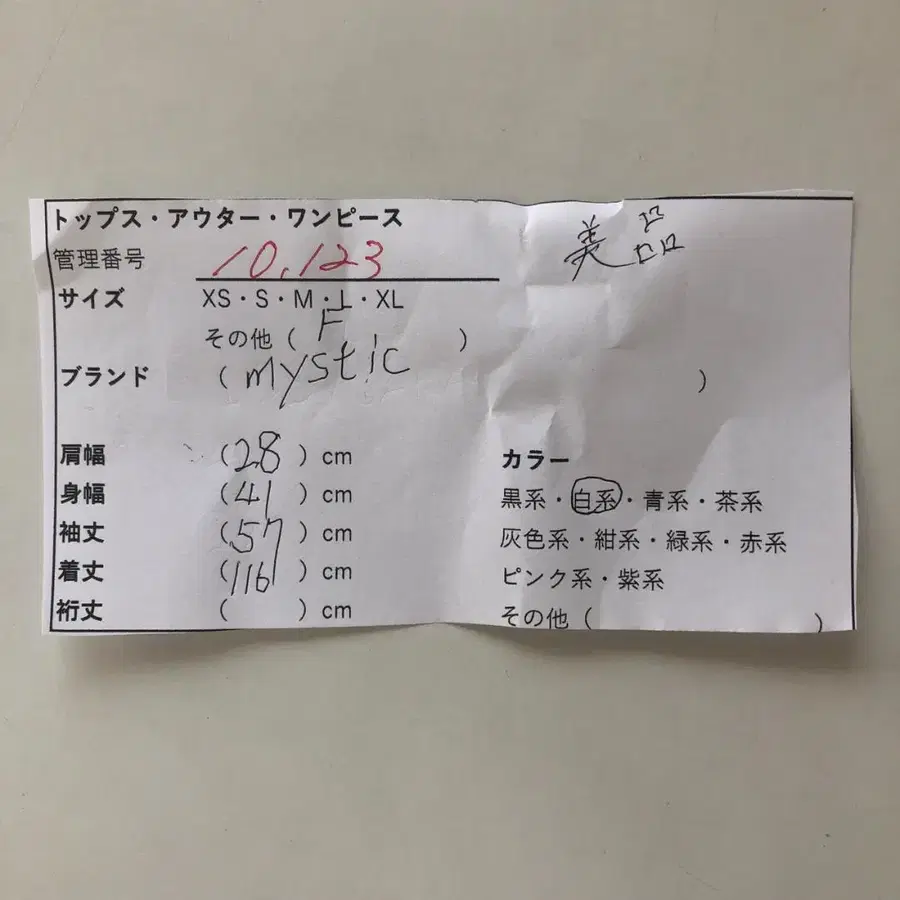 トップス・アウター・ワンピース
管理番号 10,123
美品
サイズ XS・S・M・L・XL
その他 ( F )
ブランド ( mystic )
肩幅 (28) cm
身幅 (41) cm
袖丈 (57) cm
着丈 (116) cm
裄丈 ( ) cm
カラー
黒系・白系・青系・茶系
灰色系・紺系・緑系・赤系
ピンク系・紫系
その他 ( )